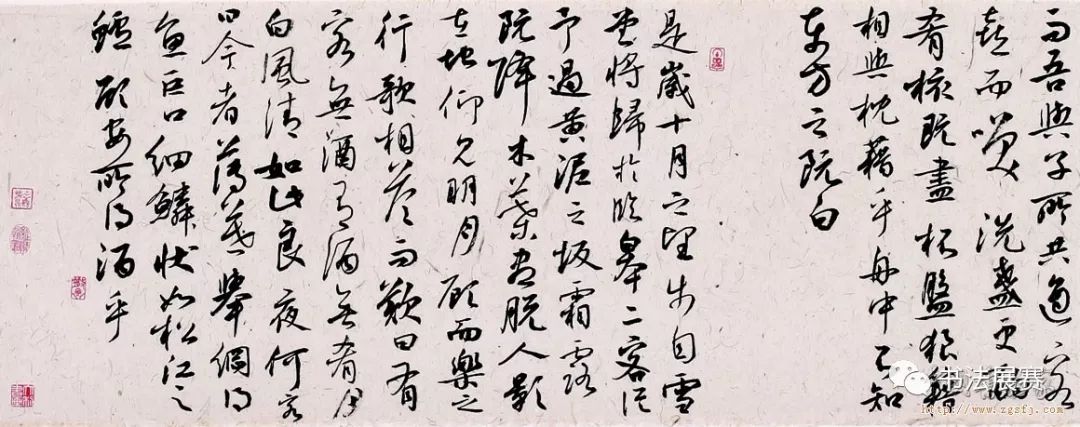 而吾與子所共適客
喜而笑洗盞更
肴核既盡杯盤狼籍
相與枕藉乎舟中不知
東方之既白
是歲十月之望步自雪
堂將歸於臨皋二客從
予過黄泥之坂霜露
既降木葉盡脱人影
在地仰見明月顧而樂之
行歌相答而歎曰有
客無酒有酒無肴月
白風清如此良夜何客
曰今者薄暮舉網得
魚巨口細鱗狀如松江之
鱸顧安所得酒乎
书法展赛
http://www.zgsfj.com